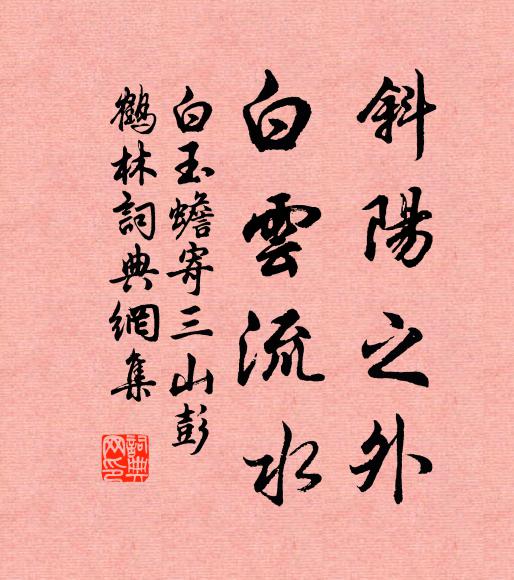 斜陽之外
白雲流水
白玉蟾寄三山彭
鶴林詞典網集
詞典網印